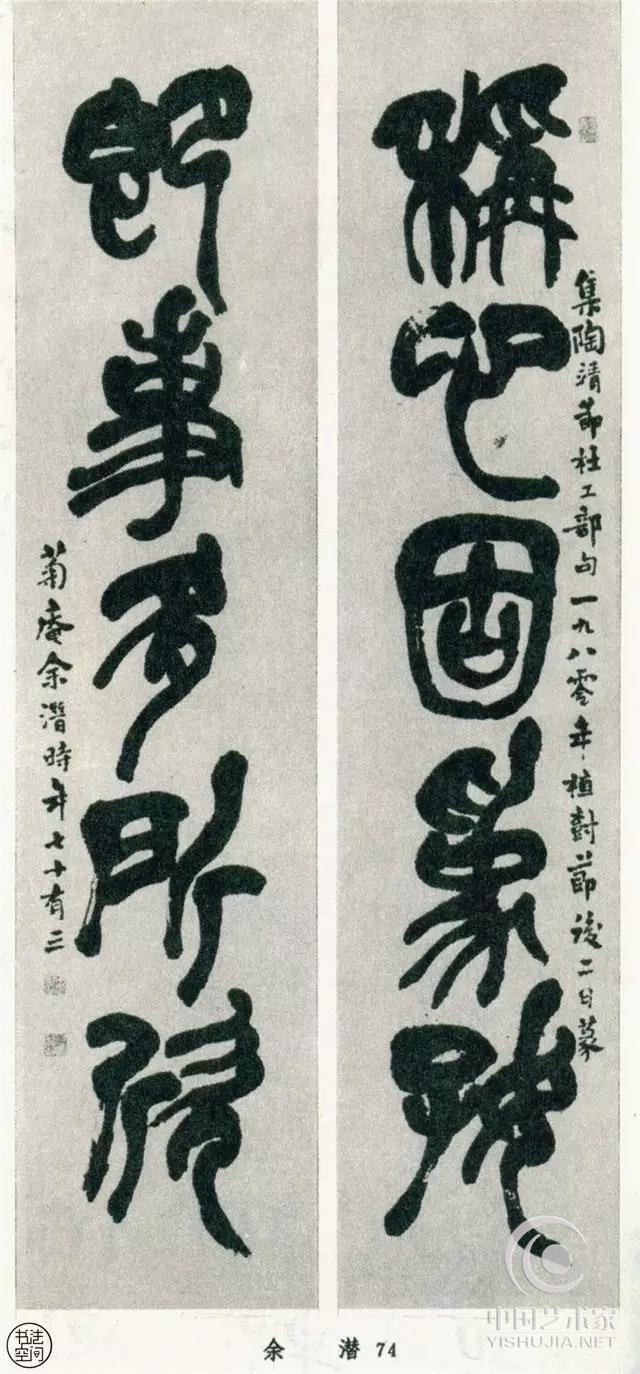 稱心固爲好
集陶靖節杜工部句一九八零年植樹節後二日篆
即事多所欣
菊庵余潛時年七十有三
余 潜 74
书法
空间
中国艺术家
YISHUJIA.NET